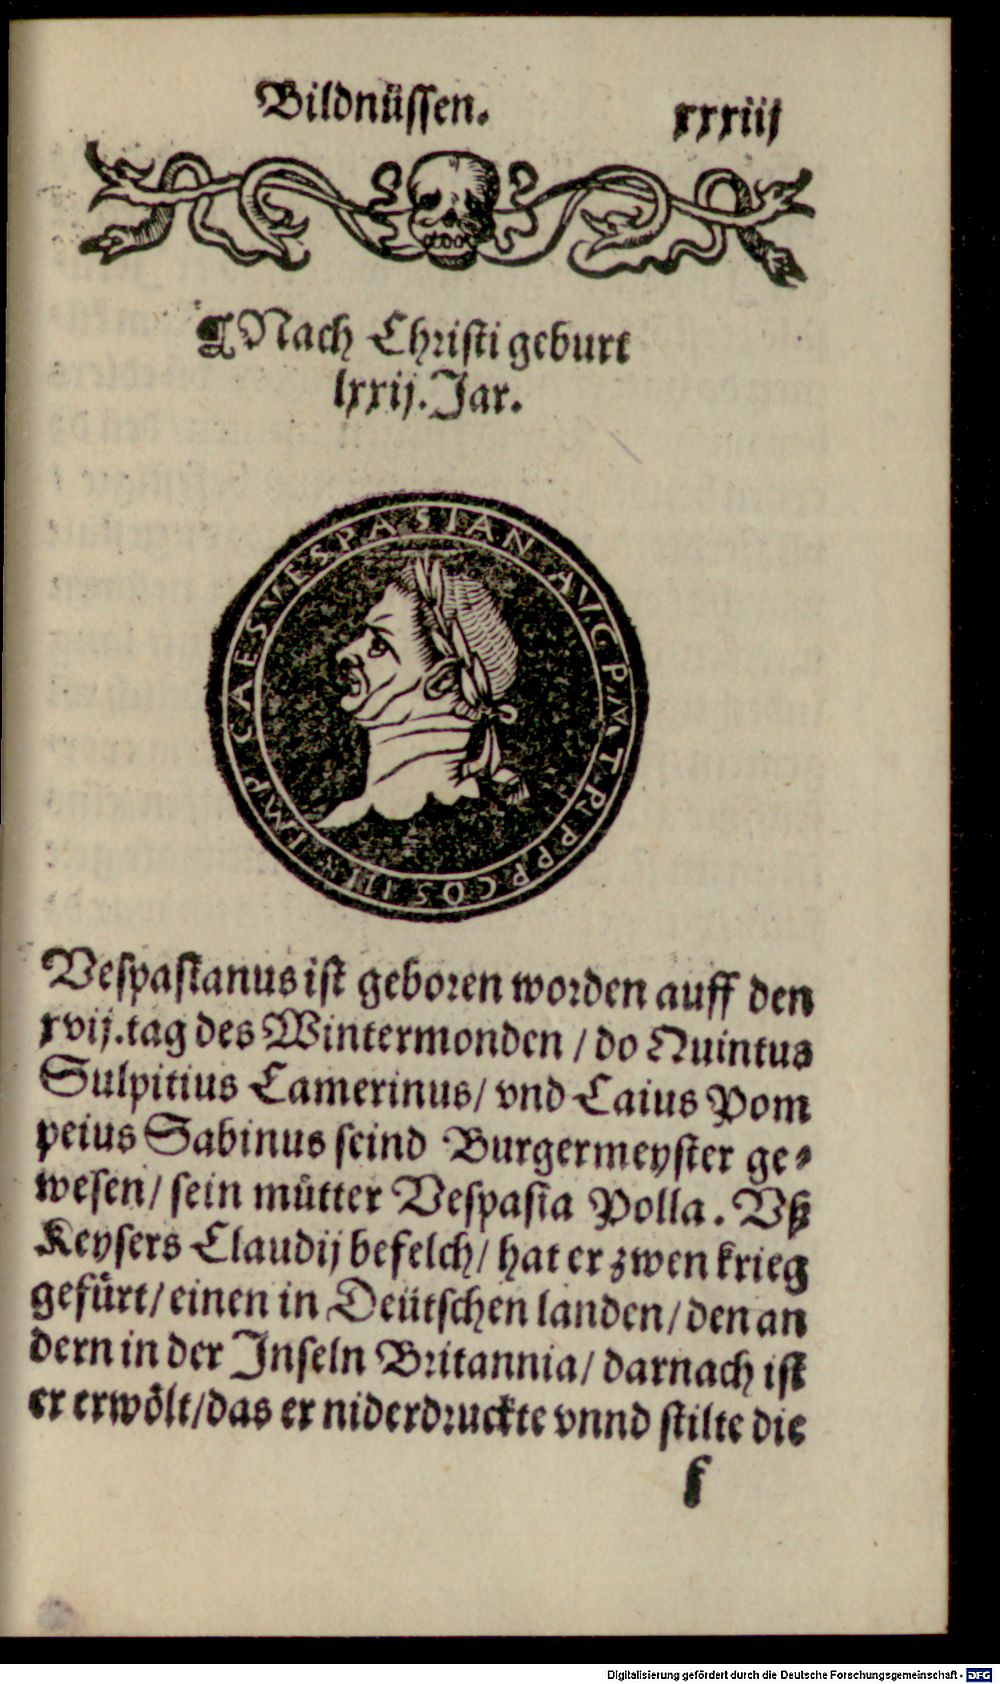 Bildnüssen. xxxiij
¶ Nach Christi geburt
lxxij. Jar.
IMP CAES VESPASIAN AVG P M T P P P P COS IIII
Vespasianus ist geboren worden auff den
xvij. tag des Wintermonden / do Quintus
Sulpitius Camerinus / vnd Caius Pom
peius Sabinus seind Burgermeyster ge⸗
wesen / sein můtter Vespasia Polla. Vß
Keysers Claudij befelch / hat er zwen krieg
gefůrt / einen in Deütschen landen / den an
dern in der Inseln Britannia / darnach ist
er erwoͤlt / das er niderdruckte vnnd stilte die
f
Digitalisierung gefördert durch die Deutsche Forschungsgemeinschaft - DFG